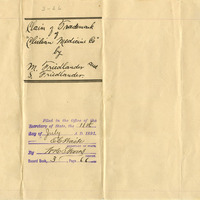 Claim of Trademark
of
"Chilean Medicine Co"
by
M. Friedlander and
S. Friedlander
Filed in the Office of the
Secretary of State, the 11th
day of July A.D. 1893.
By
Record Book 3 Page 66